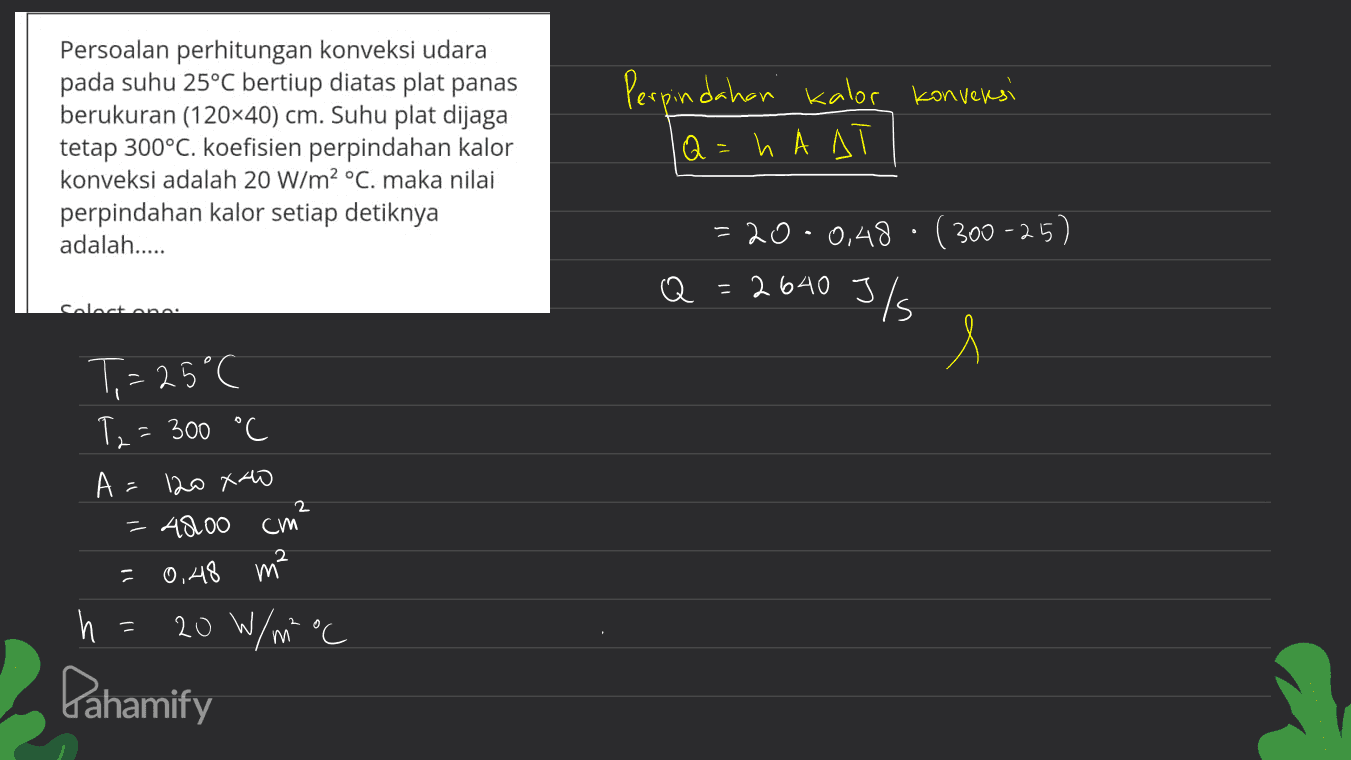 Persoalan perhitungan konveksi udara
pada suhu 25°C bertiup diatas plat panas
berukuran (120×40) cm. Suhu plat dijaga
tetap 300°C. koefisien perpindahan kalor
konveksi adalah 20 W/m² °C. maka nilai
perpindahan kalor setiap detiknya
adalah.....
Select one:
Perpindahan kalor konveksi
Q = h A ΔT
= 20 · 0,48 · (300-25)
Q = 2640 J/s
T₁ = 25°C
T₂ = 300 °C
A = 120 x 40
= 4800 cm²
= 0,48 m²
h = 20 W/m² °C
Pahamify